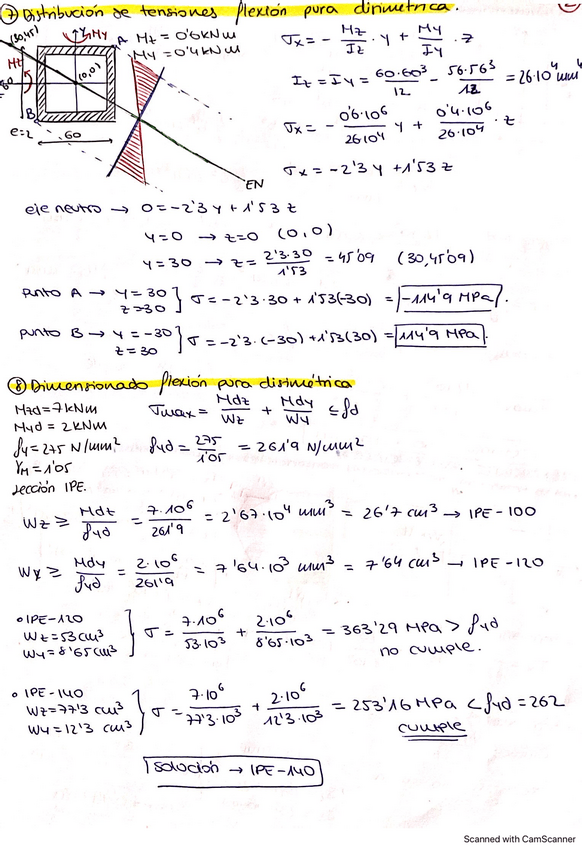 ⑦ Distribución de tensiones flexión pura disimétrica.
(30,45) Y My A Mz = 0'6 kNm
Mz My = 0'4 kNm
(0,0)
60
B
e=2 60
EN
σx = - Mz/Iz · y + My/Iy · z
Iz = Iy = 60·60³/12 - 56·56³/12 = 26·10⁴ mm⁴
σx = - 0'6·10⁶/26·10⁴ y + 0'4·10⁶/26·10⁴ · z
σx = -2'3 y + 1'53 z
eje neutro → 0 = -2'3 y + 1'53 z
y=0 → z=0 (0,0)
y=30 → z = 2'3·30/1'53 = 45'09 (30,45'09)
punto A → y=30 z=-30 } σ = -2'3·30 + 1'53(-30) = -114'9 MPa.
punto B → y=-30 z=30 } σ = -2'3·(-30) + 1'53(30) = 114'9 MPa.
⑧ Dimensionado flexión pura disimétrica
Mzd = 7 kNm
Myd = 2 kNm
fy = 275 N/mm²
γM = 1'05
sección IPE.
σmax = Mdz/Wz + Mdy/Wy ≤ fd
fyd = 275/1'05 = 261'9 N/mm²
Wz ≥ Mdz/fyd = 7·10⁶/261'9 = 2'67·10⁴ mm³ = 26'7 cm³ → IPE-100
Wy ≥ Mdy/fyd = 2·10⁶/261'9 = 7'64·10³ mm³ = 7'64 cm³ → IPE-120
◦ IPE-120
Wz = 53 cm³
Wy = 8'65 cm³ } σ = 7·10⁶/53·10³ + 2·10⁶/8'65·10³ = 363'29 MPa > fyd
no cumple.
◦ IPE-140
Wz = 77'3 cm³
Wy = 12'3 cm³ } σ = 7·10⁶/77'3·10³ + 2·10⁶/12'3·10³ = 253'16 MPa < fyd = 262
cumple
solución → IPE-140
Scanned with CamScanner